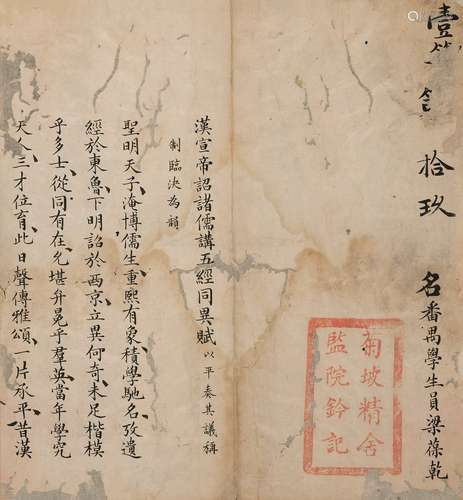 壹
拾玖
名番禺學生員梁葆乾
菊坡精舍
監院鈐記
漢宣帝詔諸儒講五經同異賦以平奏其議稱
制臨決為韻
聖明天子淹博儒生重熙有象積學馳名孜遺
經於東魯下明詔於西京立異何奇未足楷模
乎多士從同有在允堪升冕乎羣英當年學究
天人三才位育此日聲傳雅頌一片承平昔漢